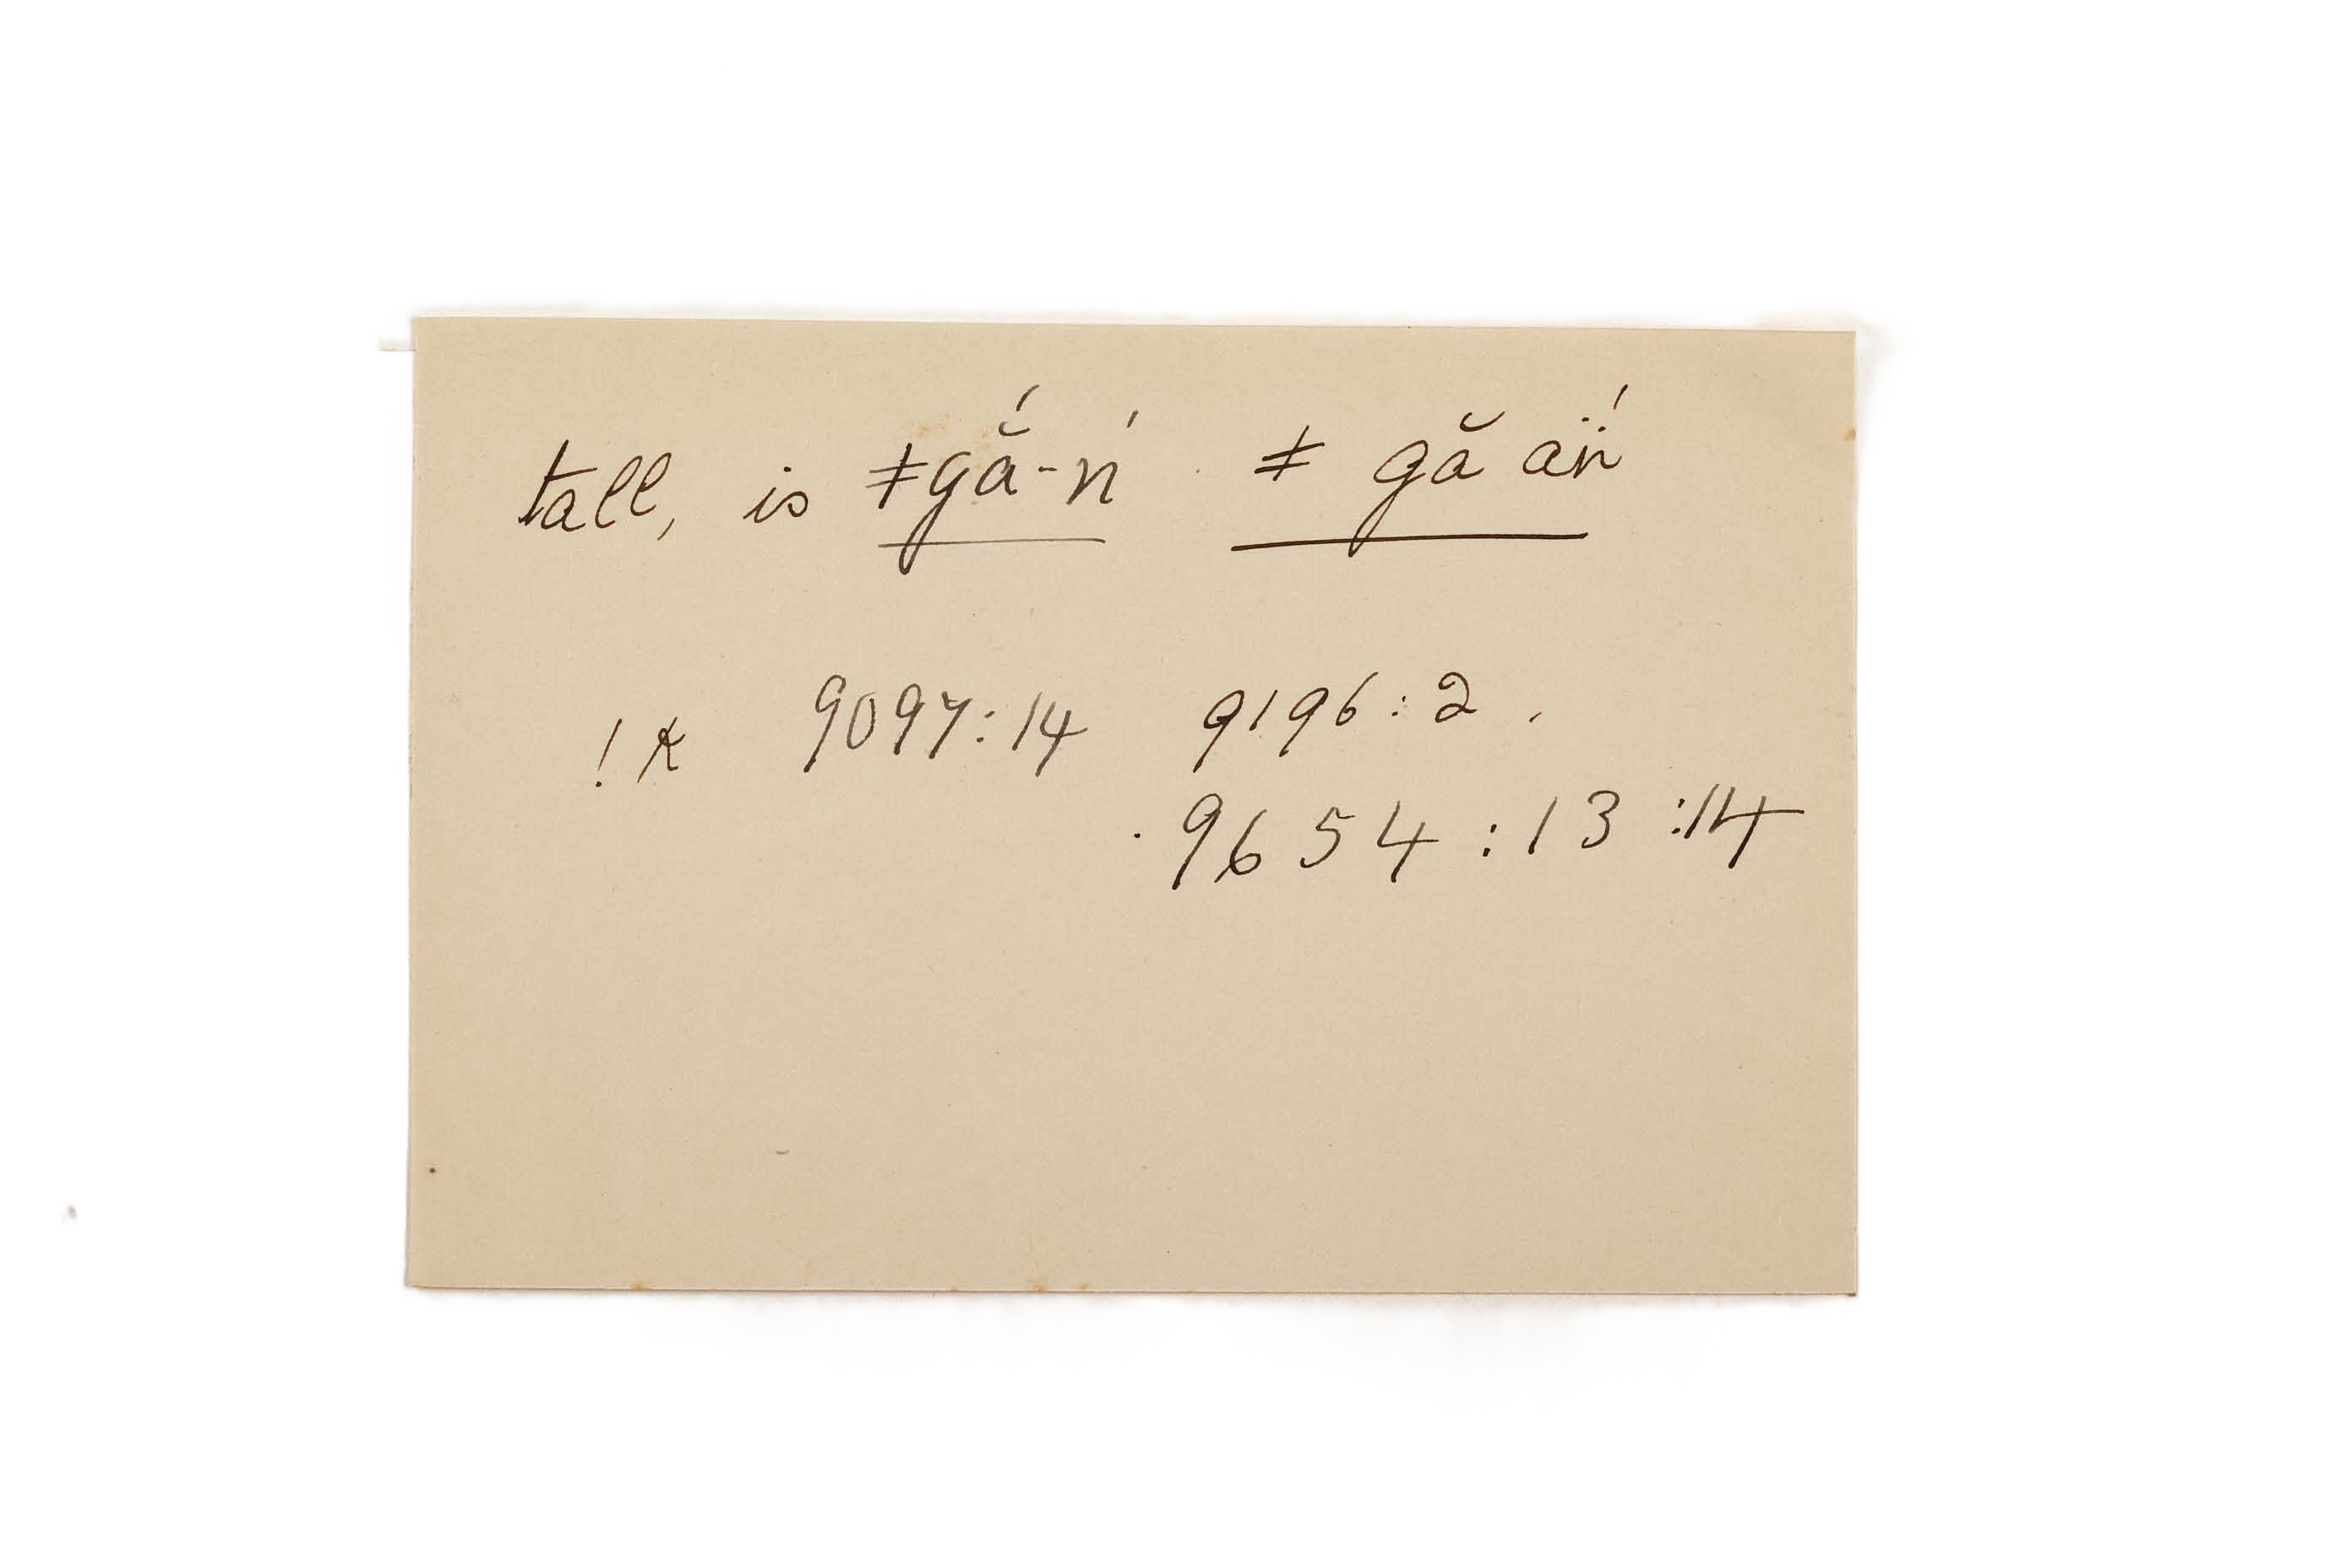 tall, is ǂgắ-ń ǂ gă äń
! k 9097:14 9196:2 .
. 9654:13 :14